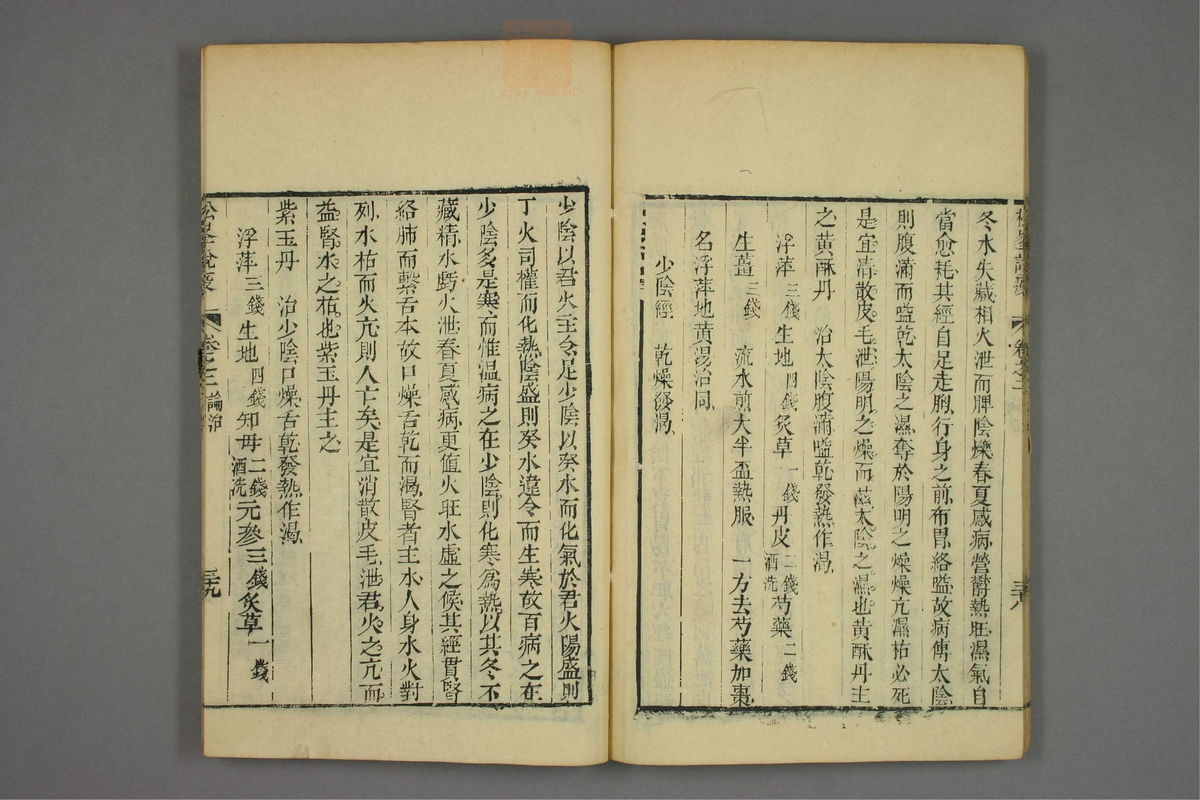 冬水失藏相火泄而脾陰爍春夏感病營鬱熱旺濕氣自
當愈耗其經自足走胸行身之前布胃絡嗌故病傳太陰
則腹滿而嗌乾太陰之濕奪於陽明之燥燥亢濕枯必死
是宜清散皮毛泄陽明之燥而滋太陰之濕也黃酥丹主
之黃酥丹　治太陰腹滿嗌乾發熱作渴
浮萍三錢生地四錢炙草一錢丹皮二錢酒洗芍藥二錢
生薑三錢　流水煎大半盃熱服　一方去芍藥加棗
名浮萍地黃湯治同
少陰經　乾燥發渴
卷之二
三十八
少陰以君火主令足少陰以癸水而化氣於君火陽盛則
丁火司權而化熱陰盛則癸水違令而生寒故百病之在
少陰多是寒而惟溫病之在少陰則化寒爲熱以其冬不
藏精水虧火泄春夏感病更值火旺水虛之候其經貫腎
絡肺而繫舌本故口燥舌乾而渴腎者主水人身水火對
列水枯而火亢則人亡矣是宜消散皮毛泄君火之亢而
益腎水之枯也紫玉丹主之
紫玉丹　治少陰口燥舌乾發熱作渴
浮萍三錢生地四錢知母二錢酒洗元參三錢炙草一錢
松峯說疫
卷之二 論治
三十九